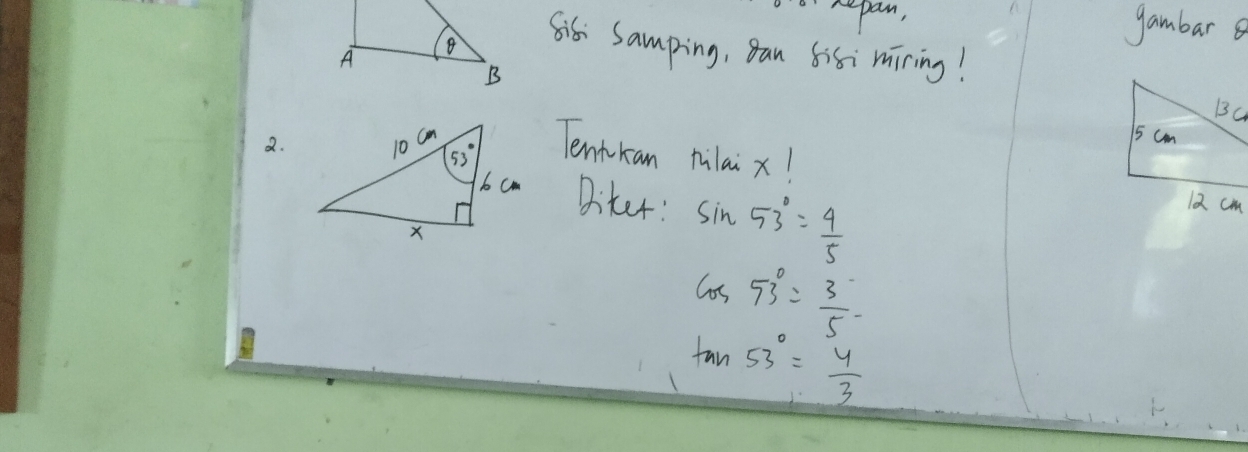 sisi samping, dan sisi miring!
A
θ
B
2.
10 cm
53°
6 cm
x
Tentukan nilai x!
Diket: sin 53° = 4/5
cos 53° = 3/5
tan 53° = 4/3
gambar
13
5 cm
12 cm